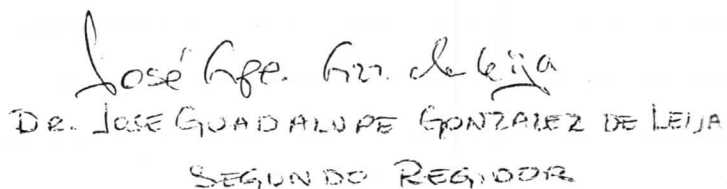 José Gpe. Gzz. de Leija
DR. JOSE GUADALUPE GONZALEZ DE LEIJA
SEGUNDO REGIDOR